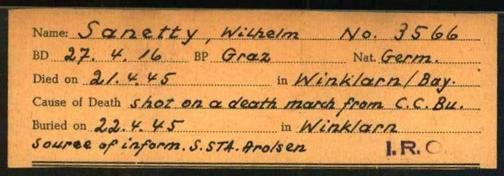 Name: Sanetty, Wilhelm No. 3566
BD 27.4.16 BP Graz Nat. Germ.
Died on 21.4.45 in Winklarn/Bay.
Cause of Death shot on a death march from C.C. Bu.
Buried on 22.4.45 in Winklarn
Source of inform. S.STA. Arolsen I.R.O.